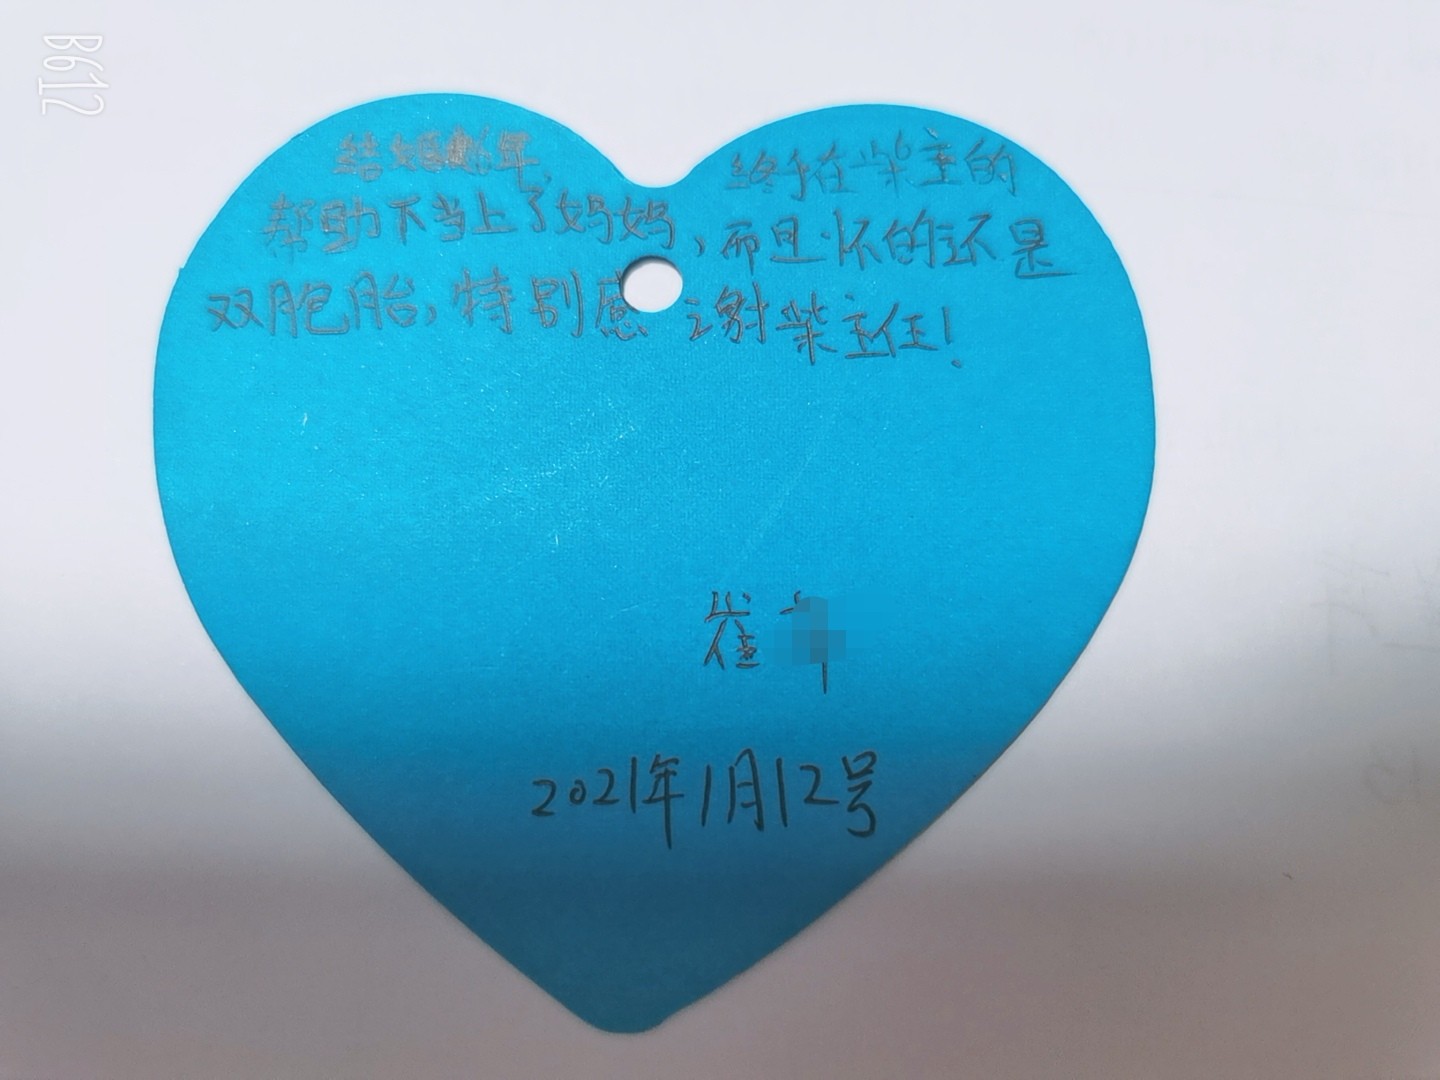 B612
结婚 年, 终于在柴主的
帮助下当上了妈妈,而且怀的还是
双胞胎,特别感谢柴主任!
崔
2021年1月12号